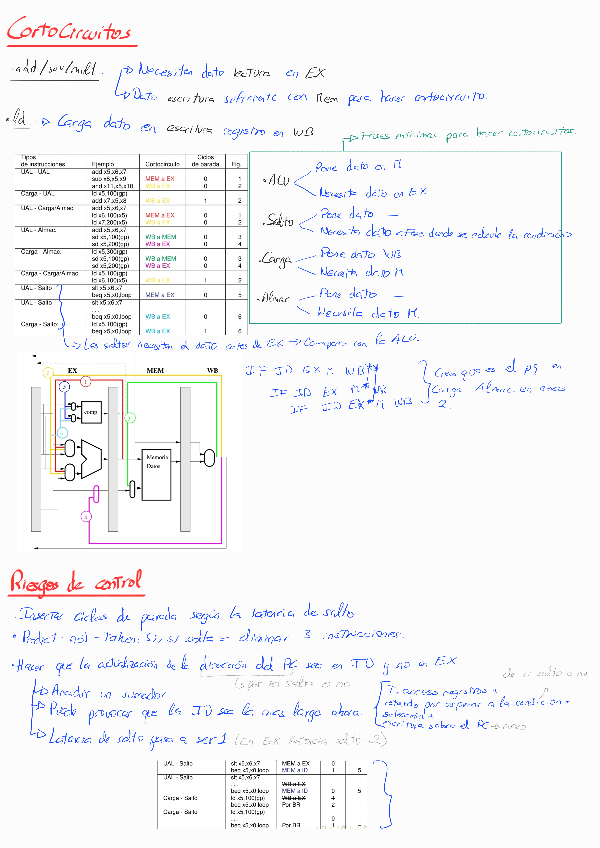 CortoCircuitos
· add/sub/mul.
→ Necesitan dato lectura en EX
→ Dato escritura suficiente con Mem para hacer cortocircuito.
· ld → Carga dato en escritura registro en WB
→ Fases mínimas para hacer cortocircuitos.
Tipos de instrucciones Ejemplo Cortocircuito Ciclos de parada Fig.
UAL - UAL add x5,x6,x7
sub x8,x5,x9 MEM a EX 0 1
and x11,x5,x10 WB a EX 0 2
Carga - UAL ld x5,100(gp)
add x7,x5,x8 WB a EX 1 2
UAL - Carga/Almac. add x5,x6,x7
ld x6,100(x5) MEM a EX 0 1
ld x7,200(x5) WB a EX 0 2
UAL - Almac. add x5,x6,x7
sd x5,100(gp) WB a MEM 0 3
sd x5,200(gp) WB a EX 0 4
Carga - Almac. ld x5,300(gp)
sd x5,100(gp) WB a MEM 0 3
sd x5,200(gp) WB a EX 0 4
Carga - Carga/Almac. ld x5,100(gp)
ld x6,100(x5) WB a EX 1 2
UAL - Salto slt x5,x6,x7
beq x5,x0,loop MEM a EX 0 5
UAL - Salto slt x5,x6,x7
...
beq x5,x0,loop WB a EX 0 6
Carga - Salto ld x5,100(gp)
beq x5,x0,loop WB a EX 1 6
· ALU
Pone dato en M
Necesita dato en EX
· Salto
Pone dato —
Necesita dato <Fase donde se calcule la condición>
· Carga
Pone dato WB
Necesita dato M.
· Almac
Pone dato —
Necesita dato M.
→ Los saltos necesitan el dato antes de EX → Comparan con la ALU.
EX MEM WB
comp
Memoria
Datos
IF ID EX M WB
IF ID EX M WB
IF ID EX M WB
Creo que es el pq en
Carga Almac. en
2.
Riesgos de control
· Insertar ciclos de parada según la latencia de salto
· Predict-not-taken: Si, si salta = eliminar 3 instrucciones.
· Hacer que la actualización de la dirección del PC sea en ID y no en EX
→ Añadir un sumador
→ Puede provocar que la ID sea la más larga ahora.
T. acceso registros +
retardo por comparar a la condición +
selección +
escritura sobre el PC
de si salta o no
→ Latencia de salto pasa a ser 1 (En EX latencia salto = 2)
UAL - Salto slt x5,x6,x7 MEM a EX 0
beq x5,x0,loop MEM a ID 1 5
UAL - Salto slt x5,x6,x7
... WB a EX
beq x5,x0,loop MEM a ID 0 5
Carga - Salto ld x5,100(gp) WB a EX 1
beq x5,x0,loop Por BR 2
Carga - Salto ld x5,100(gp)
... 0
beq x5,x0,loop Por BR 1